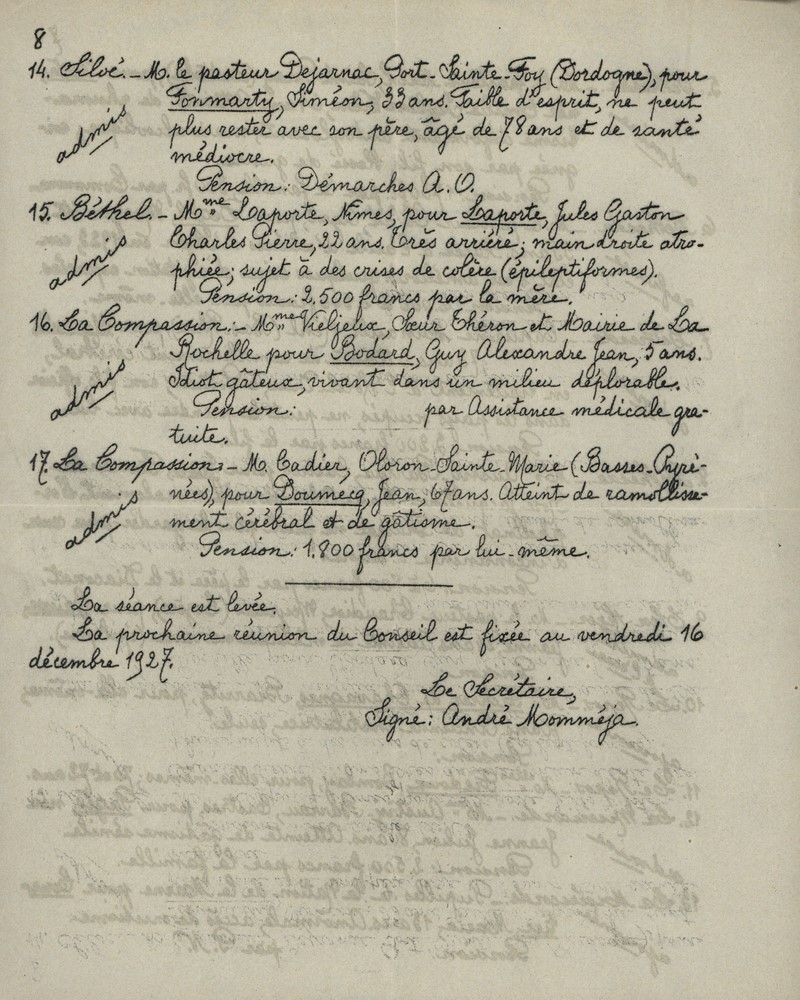 8
14. Siloé. - M. le pasteur Dejarnac, Port-Sainte-Foy (Dordogne), pour
Fonmarty, Siméon, 33 ans. Faible d'esprit, ne peut
admis
plus rester avec son père, âgé de 78 ans et de santé
médiocre.
Pension: Démarches A. O.
15. Béthel. - Mme Laporte, Nîmes, pour Laporte, Jules Gaston
Charles Pierre, 22 ans. Très arriéré; main droite atro-
admis
phiée; sujet à des crises de colère (épileptiformes).
Pension: 2.500 francs par la mère.
16. La Compassion. - Mmes Vieljeux, Sœur Théron et Mairie de La
Rochelle pour Bodard, Guy Alexandre Jean, 5 ans.
admis
Idiot gâteux, vivant dans un milieu déplorable.
Pension: par Assistance médicale gra-
tuite.
17. La Compassion. - M. Cadier, Oloron-Sainte-Marie (Basses-Pyré-
nées), pour Doumecq, Jean, 67 ans. Atteint de ramollisse-
admis
ment cérébral et de gâtisme.
Pension: 1.800 francs par lui-même.
La séance est levée.
La prochaine réunion du Conseil est fixée au vendredi 16
décembre 1927.
Le Secrétaire,
Signé: André Momméja.